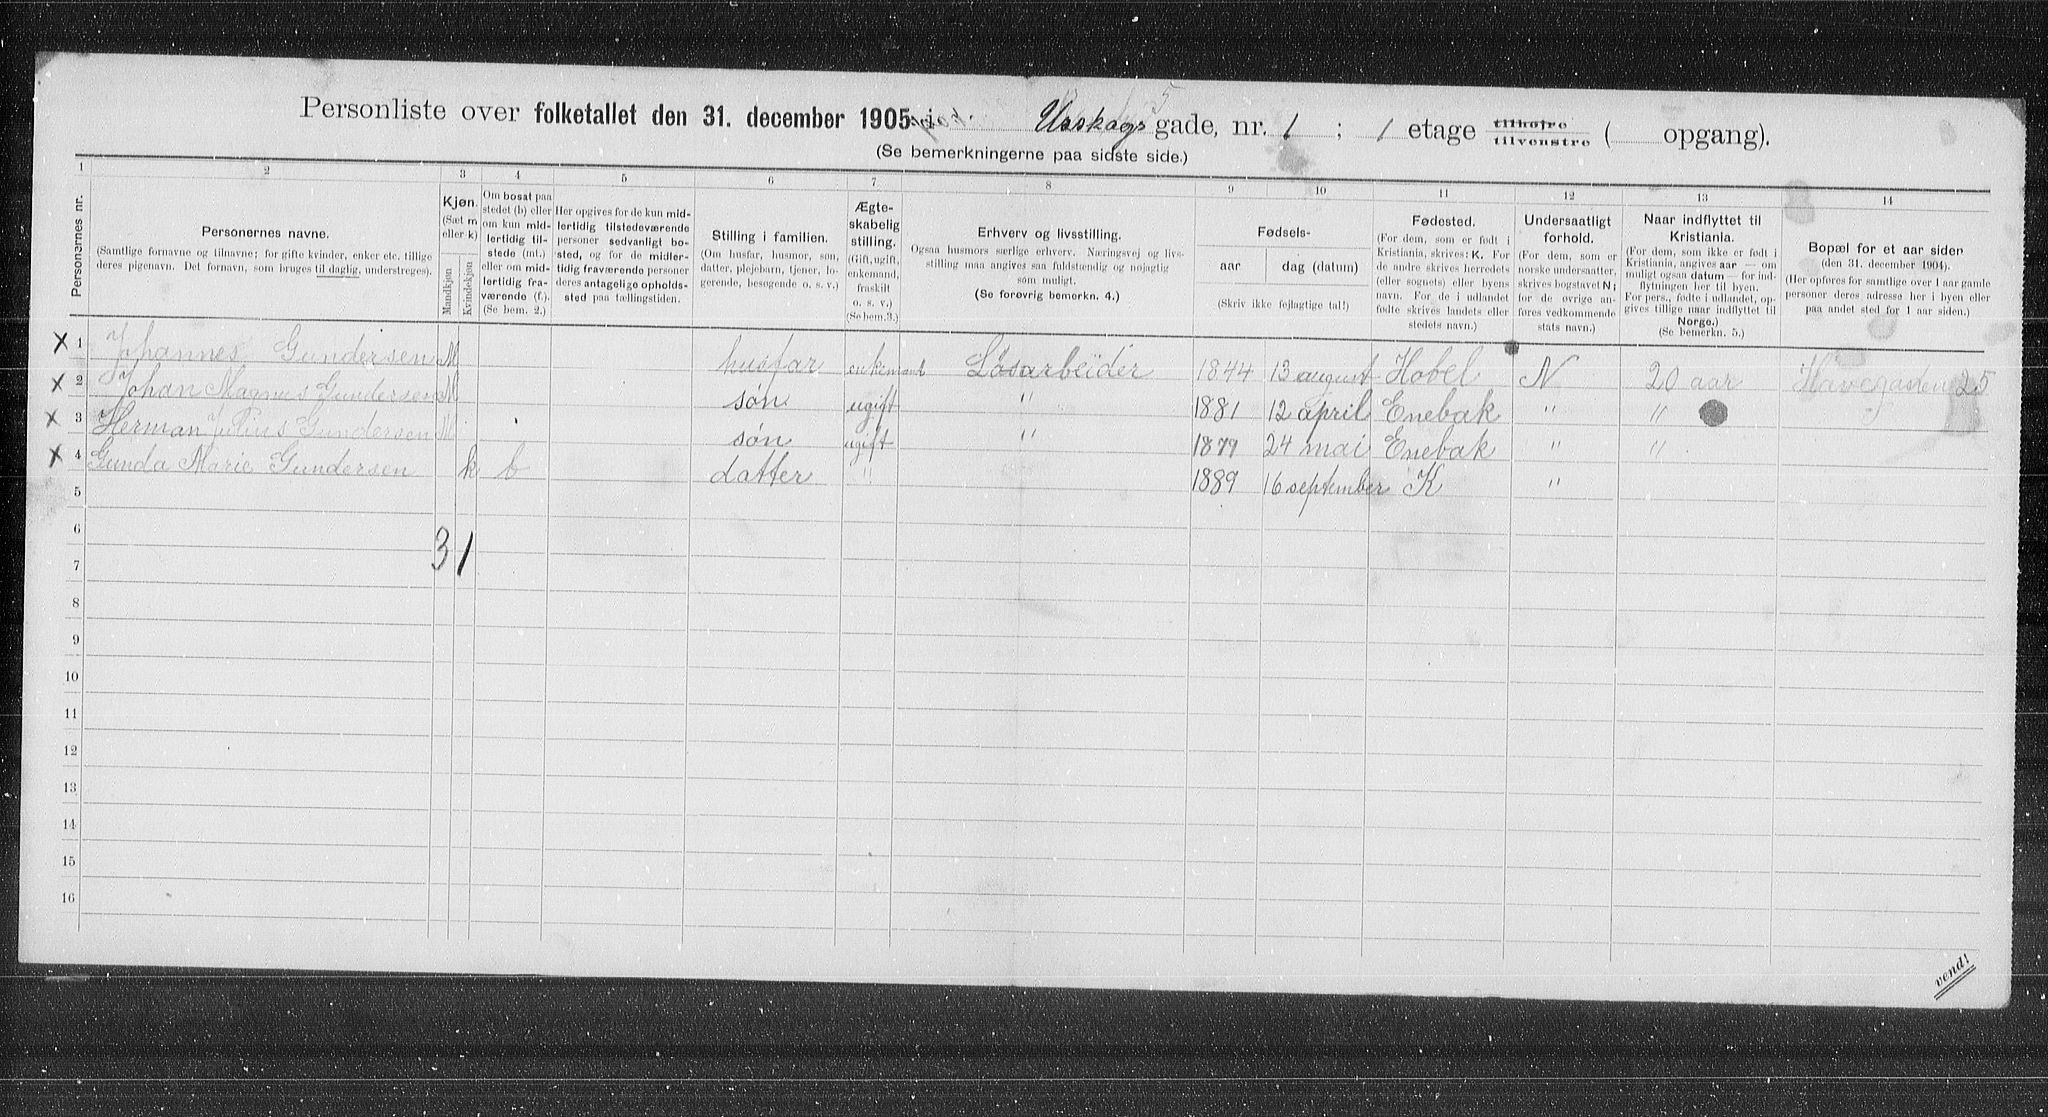 Personliste over folketallet den 31. december 1905 i Uoskogs gade, nr. 1 ; 1 etage tilhøjre tilvenstre ( opgang).
5
(Se bemerkningerne paa sidste side.)
1 2 3 4 5 6 7. 8 9 10 11 12 13 14
Personernes nr.
Personernes navne.
(Samtlige fornavne og tilnavne; for gifte kvinder, enker etc. tillige
deres pigenavn. Det fornavn, som bruges til daglig, understreges).
Kjøn.
(Sæt m
eller k)
Mandkjøn
Kvindekjøn
Om bosat paa
stedet (b) eller
om kun mid-
lertidig til-
stede (mt.)
eller om mid-
lertidig fra-
værende (f.).
(Se bem. 2.)
Her opgives for de kun mid-
lertidig tilstedeværende
personer sedvanligt bo-
sted, og for de midler-
tidig fraværende personer
deres antagelige opholds-
sted paa tællingstiden.
Stilling i familien.
(Om husfar, husmor, søn,
datter, plejebarn, tjener, lo-
gerende, besøgende o. s. v.)
Ægte-
skabelig
stilling.
(Gift, ugift,
enkemand,
fraskilt
o. s. v.)
(Se bem.3.)
Erhverv og livsstilling.
Ogsaa husmors særlige erhverv. Næringsvej og livs-
stilling maa angives saa fuldstændig og nøjagtig
som muligt.
(Se forøvrig bemerkn. 4.)
Fødsels-
aar
dag (datum)
(Skriv ikke fejlagtige tal!)
Fødested.
(For dem, som er født i
Kristiania, skrives: K. For
de andre skrives herredets
(eller sognets) eller byens
navn. For de i udlandet
fødte skrives landets eller
stedets navn.)
Undersaatligt
forhold.
(For dem, som er
norske undersaatter,
skrives bogstavet N;
for de øvrige an-
føres vedkommende
stats navn.)
Naar indflyttet til
Kristiania.
(For dem, som ikke er født i
Kristiania, angives aar — om
muligt ogsaa datum — for ind-
flytningen her til byen.
For pers., fødte i udlandet, op-
gives tillige naar indflyttet til
Norge.)
(Se bemerkn. 5.)
Bopæl for et aar siden
(den 31. december 1904).
(Her opføres for samtlige over 1 aar gamle
personer deres adresse her i byen eller
paa andet sted for 1 aar siden.)
X 1 Johannes Gundersen M husfar enkemand Løsarbeider 1844 13 august Hobel N 20 aar Havegaden 25
X 2 Johan Magnus Gundersen M søn ugift " 1881 12 april Enebak " "
X 3 Herman Julius Gundersen M søn ugift " 1879 24 mai Enebak " "
X 4 Gunda Marie Gundersen k b datter " 1889 16 september K "
5
6
3 1
7
8
9
10
11
12
13
14
15
16
vend!